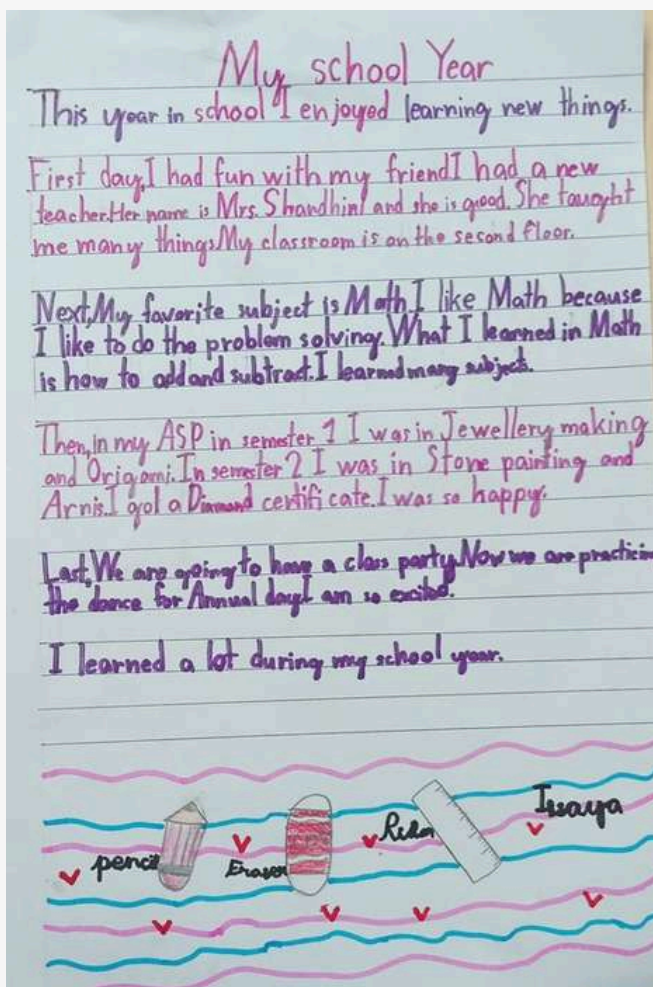 My school Year
This year in school I enjoyed learning new things.
First day,I had fun with my friend.I had a new
teacher.Her name is Mrs. Shandhini and she is good. She taught
me many things.My classroom is on the second floor.
Next,My favorite subject is Math.I like Math because
I like to do the problem solving. What I learned in Math
is how to add and subtract.I learned many subject.
Then,in my ASP in semester 1 I was in Jewellery making
and Origami.In semester 2 I was in Stone painting and
Arnis.I got a Diamand certificate.I was so happy.
Last,We are going to have a class party.Now we are practicin
the dance for Annual day.I am so excited.
I learned a lot during my school year.
Issaya
pencil
Eraser